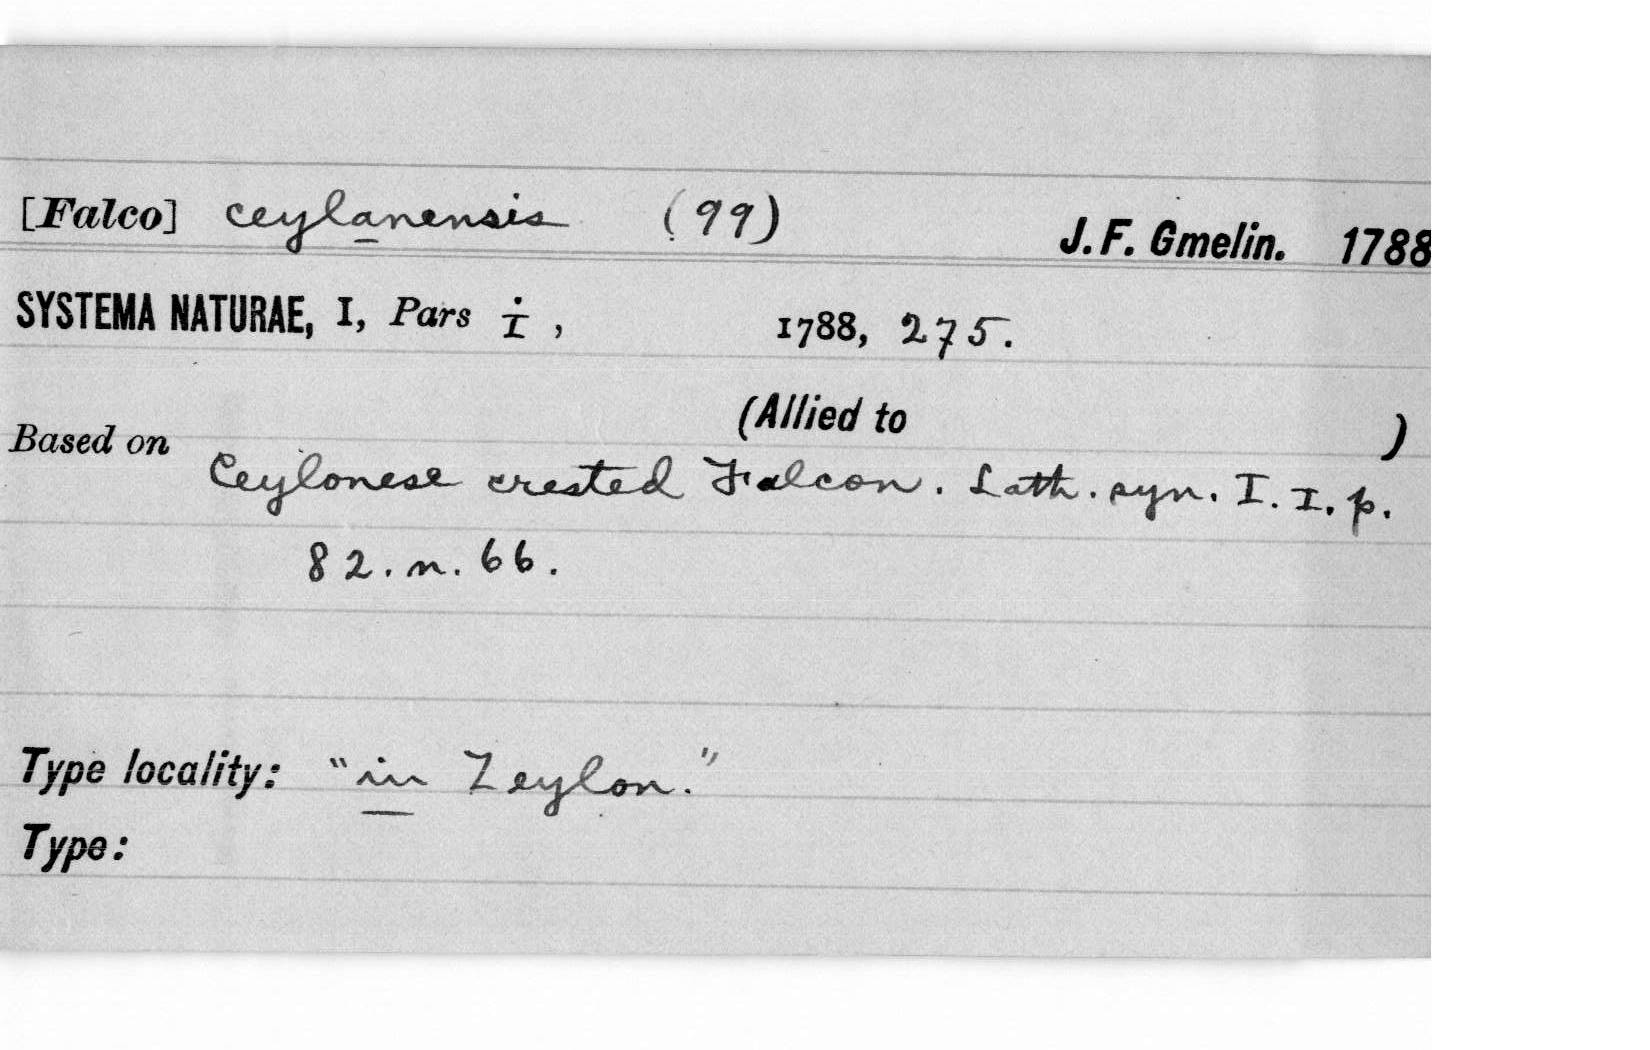 [Falco] ceylanensis (99) J. F. Gmelin. 1788
SYSTEMA NATURAE, I, Pars i, 1788, 275.
(Allied to )
Based on Ceylonese crested Falcon. Lath. syn. I. I. p.
82. n. 66.
Type locality: "in Zeylon."
Type: